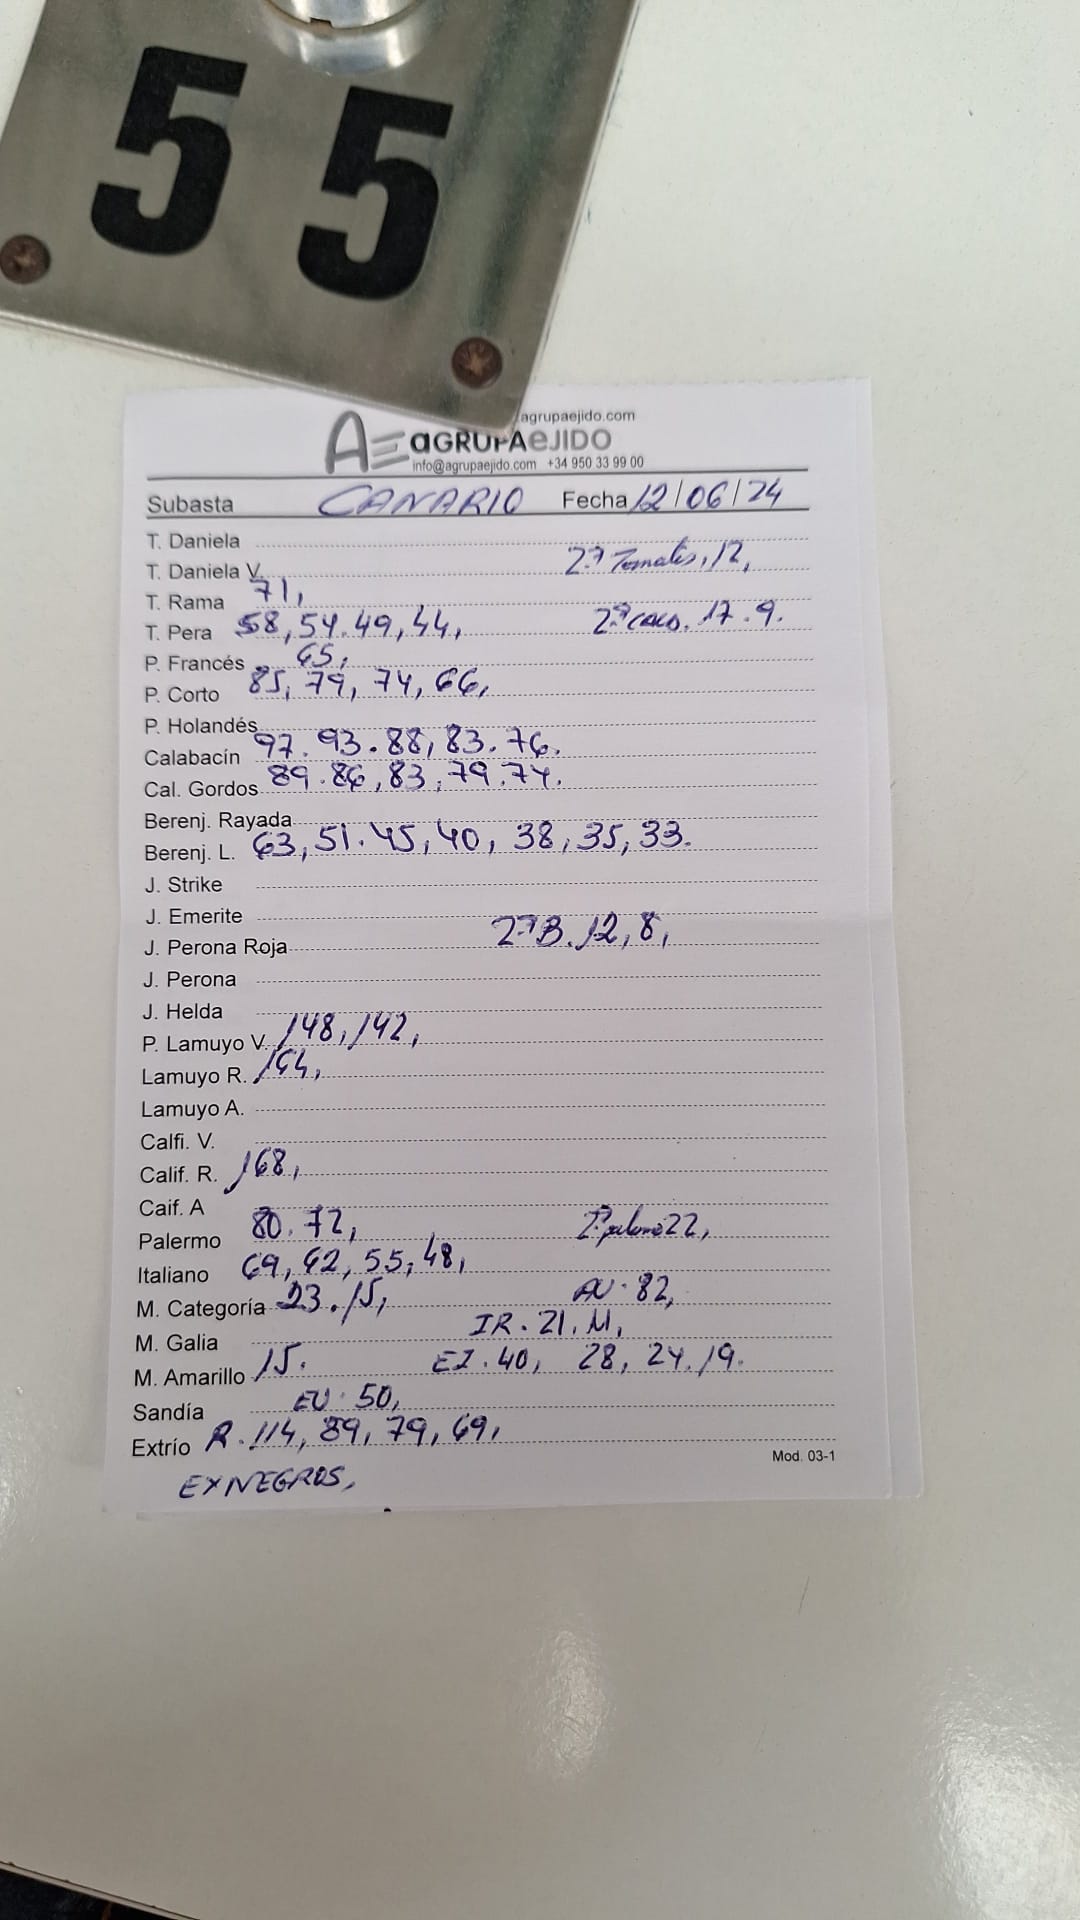 55
agrupaejido.com
AE aGRUPAeJIDO
info@agrupaejido.com +34 950 33 99 00
Subasta CANARIO Fecha 12/06/24
T. Daniela
T. Daniela V. 2ª Tomates, 12,
T. Rama 71,
T. Pera 58, 54. 49, 44, 2ª coco. 17. 9.
P. Francés 65,
P. Corto 85, 79, 74, 66,
P. Holandés
Calabacín 97. 93. 88, 83. 76.
Cal. Gordos 89. 86, 83, 79. 74.
Berenj. Rayada
Berenj. L. 63, 51. 45, 40, 38, 35, 33.
J. Strike
J. Emerite
J. Perona Roja 2ª B. 12, 8,
J. Perona
J. Helda
P. Lamuyo V. 148, 142,
Lamuyo R. 164,
Lamuyo A.
Calfi. V.
Calif. R. 168,
Caif. A
Palermo 80. 72, 22,
Italiano 69, 62, 55, 48,
M. Categoría 23. 15, AU. 82,
M. Galia IR. 21.
M. Amarillo 15. EI. 40, 28, 24. 19.
Sandía EU. 50,
Extrío R. 114, 89, 79, 69,
Mod. 03-1
EXNEGROS,